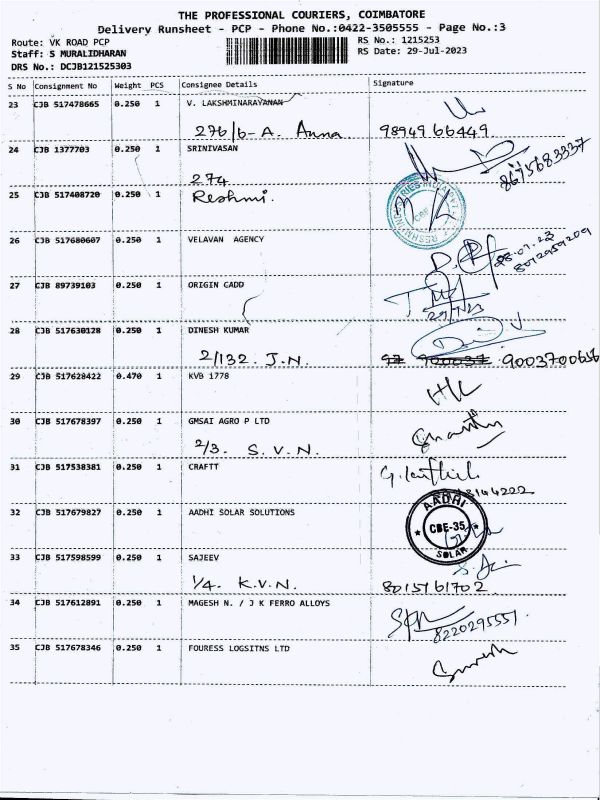 THE PROFESSIONAL COURIERS, COIMBATORE
Delivery Runsheet - PCP - Phone No.:0422-3505555 - Page No.:3
Route: VK ROAD PCP
Staff: S MURALIDHARAN
DRS No.: DCJB121525303
RS No.: 1215253
RS Date: 29-Jul-2023
S No Consignment No Weight PCS Consignee Details Signature
23 CJB 517478665 0.250 1 V. LAKSHMINARAYANAN
276/6-A. Anna 98949 66449
24 CJB 1377703 0.250 1 SRINIVASAN
274 8675683337
25 CJB 517408720 0.250 1 Reshmi.
CBE
26 CJB 517680607 0.250 1 VELAVAN AGENCY
8012959209
27 CJB 89739103 0.250 1 ORIGIN CADD
28 CJB 517630128 0.250 1 DINESH KUMAR
2/132. J.N. 9003700656
29 CJB 517628422 0.470 1 KVB 1778
30 CJB 517678397 0.250 1 GMSAI AGRO P LTD
2/3. S.V.N.
31 CJB 517538381 0.250 1 CRAFTT
32 CJB 517679827 0.250 1 AADHI SOLAR SOLUTIONS
AADHI
CBE-35
SOLAR
33 CJB 517598599 0.250 1 SAJEEV
1/4. K.V.N. 8015161702
34 CJB 517612891 0.250 1 MAGESH N. / J K FERRO ALLOYS
8220295551.
35 CJB 517678346 0.250 1 FOURESS LOGSITNS LTD
Suresh